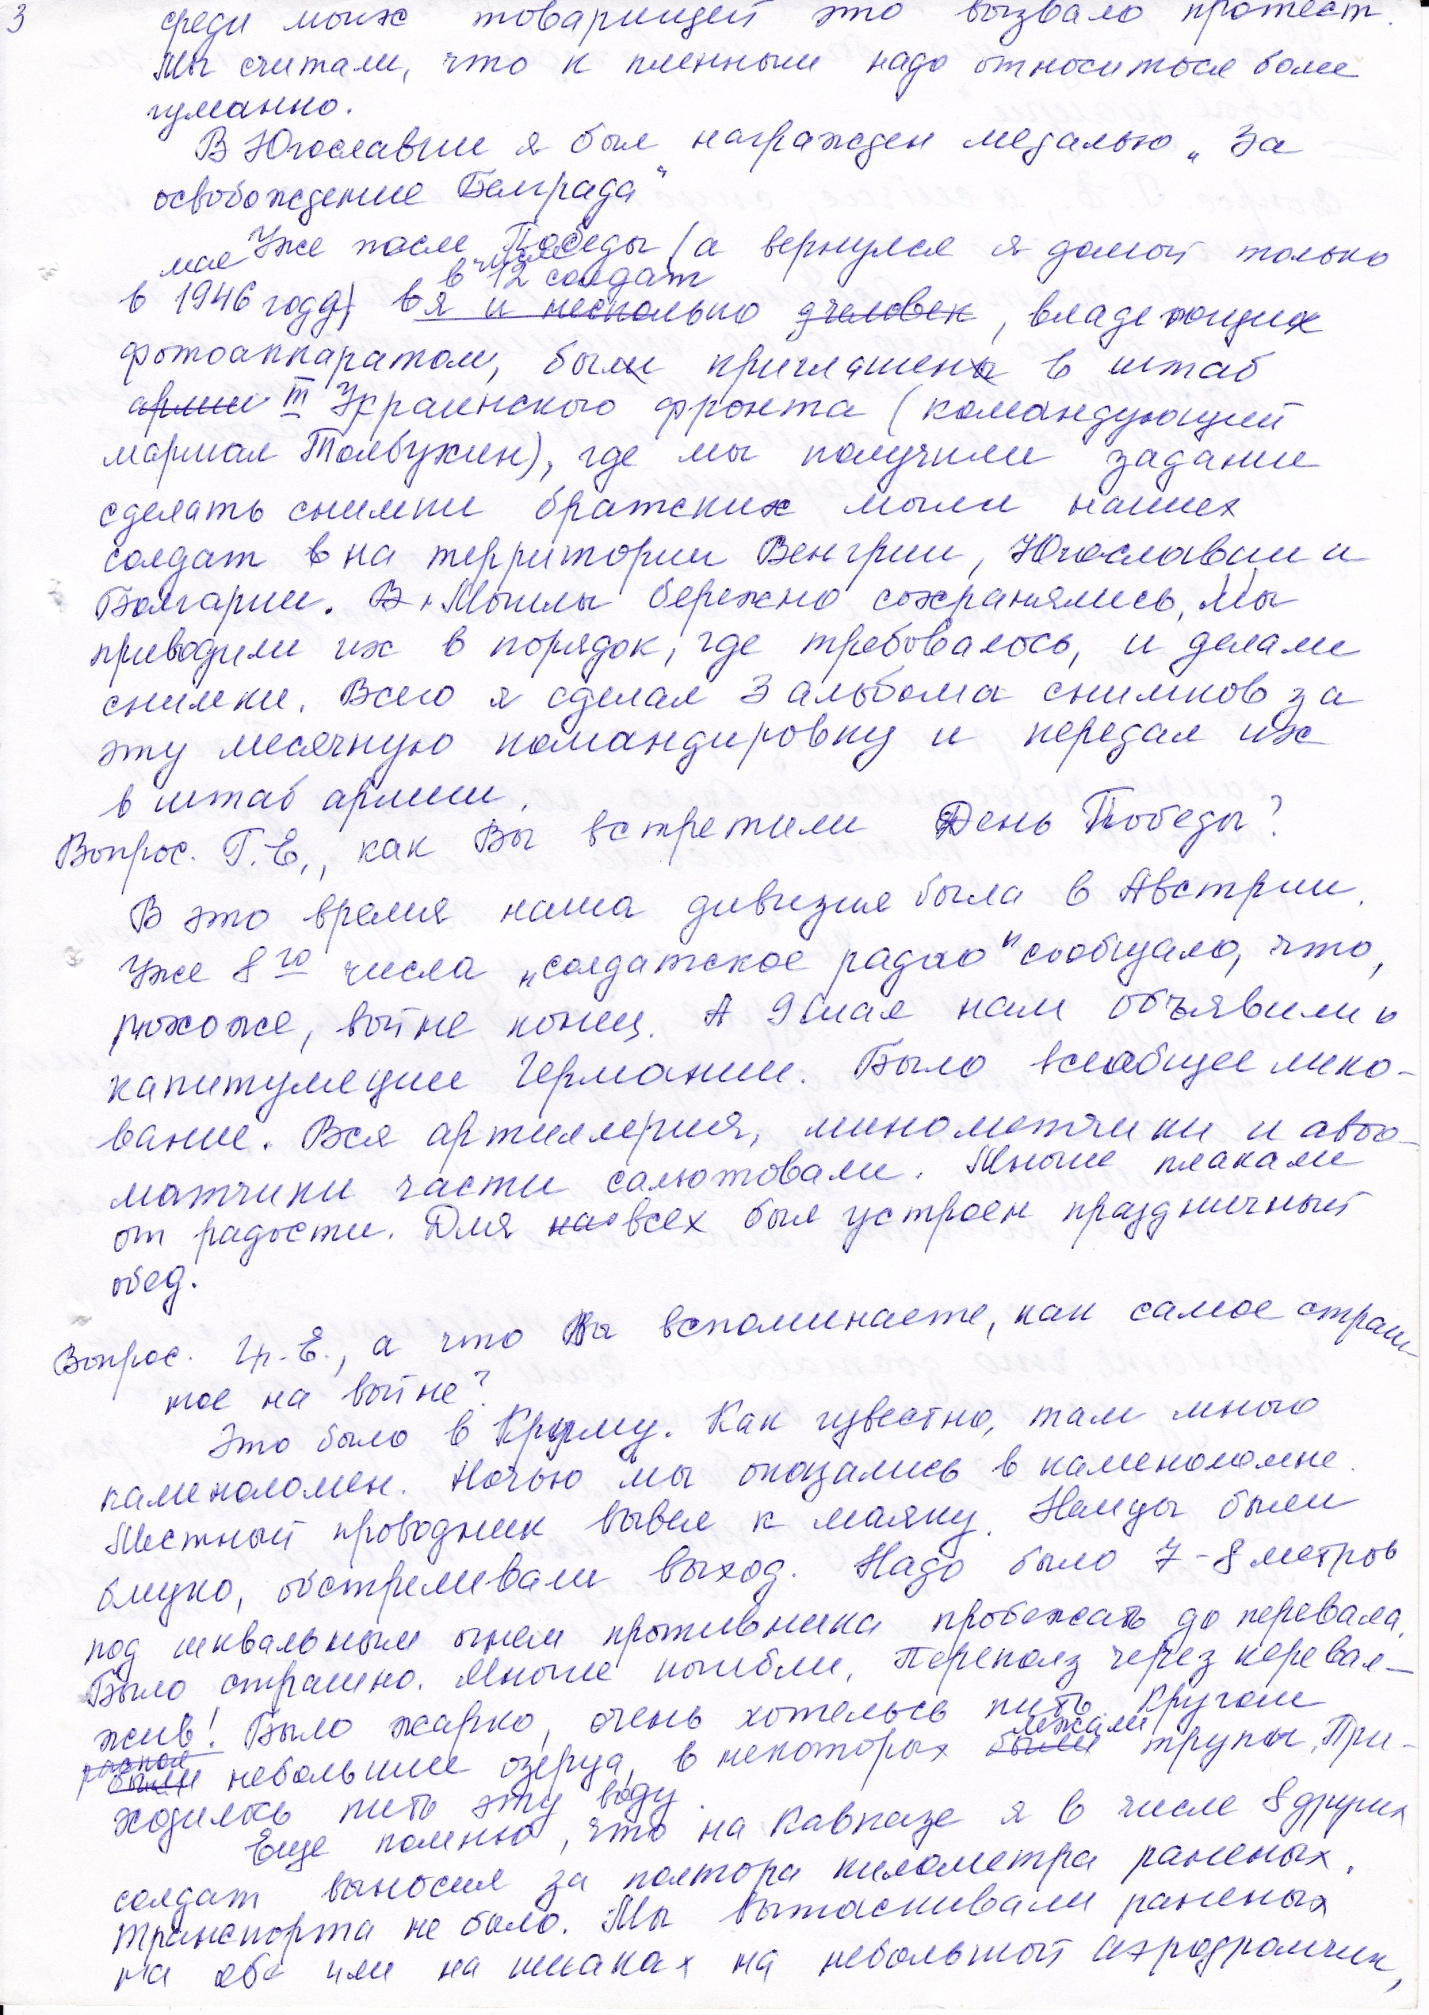 3
среди моих товарищей это вызвало протест.
Мы считали, что к пленным надо относиться более
гуманно.
В Югославии я был награжден медалью „За
освобождение Белграда"
Уже после Победы (а вернулся я домой только
мае в числе
в 12 солдат
в 1946 году) я и несколько человек, владеющих
фотоаппаратом, были приглашены в штаб
армии III Украинского фронта (командующий
маршал Толбухин), где мы получили задание
сделать снимки братских могил наших
солдат в на территории Венгрии, Югославии и
Болгарии. В Могилы бережно сохранялись. Мы
приводили их в порядок, где требовалось, и делали
снимки. Всего я сделал 3 альбома снимков за
эту месячную командировку и передал их
в штаб армии.
Вопрос. Г.Е., как Вы встретили День Победы?
В это время наша дивизия была в Австрии.
Уже 8го числа „солдатское радио" сообщало, что,
похоже, войне конец. А 9 мая нам объявили о
капитуляции Германии. Было всеобщее лико-
вание. Вся артиллерия, минометчики и авто-
матчики части салютовали. Многие плакали
от радости. Для всех был устроен праздничный
обед.
Вопрос. Гр.Е., а что Вы вспоминаете, как самое страш-
ное на войне?
Это было в Крыму. Как известно, там много
каменоломен. Ночью мы оказались в каменоломне.
Местный проводник вывел к маяку. Немцы были
близко, обстреливали выход. Надо было 7-8 метров
под шквальным огнем противника пробежать до перевала.
Было страшно. Многие погибли. Переполз через перевал –
жив! Было жарко, очень хотелось пить. Кругом
были небольшие озерца, в некоторых были лежали трупы. При-
ходилось пить эту воду.
Еще помню, что на Кавказе я в числе 8 других
солдат выносил за полтора километра раненых.
Транспорта не было. Мы вытаскивали раненых
на себе или на ишаках на небольшой аэродромчик,